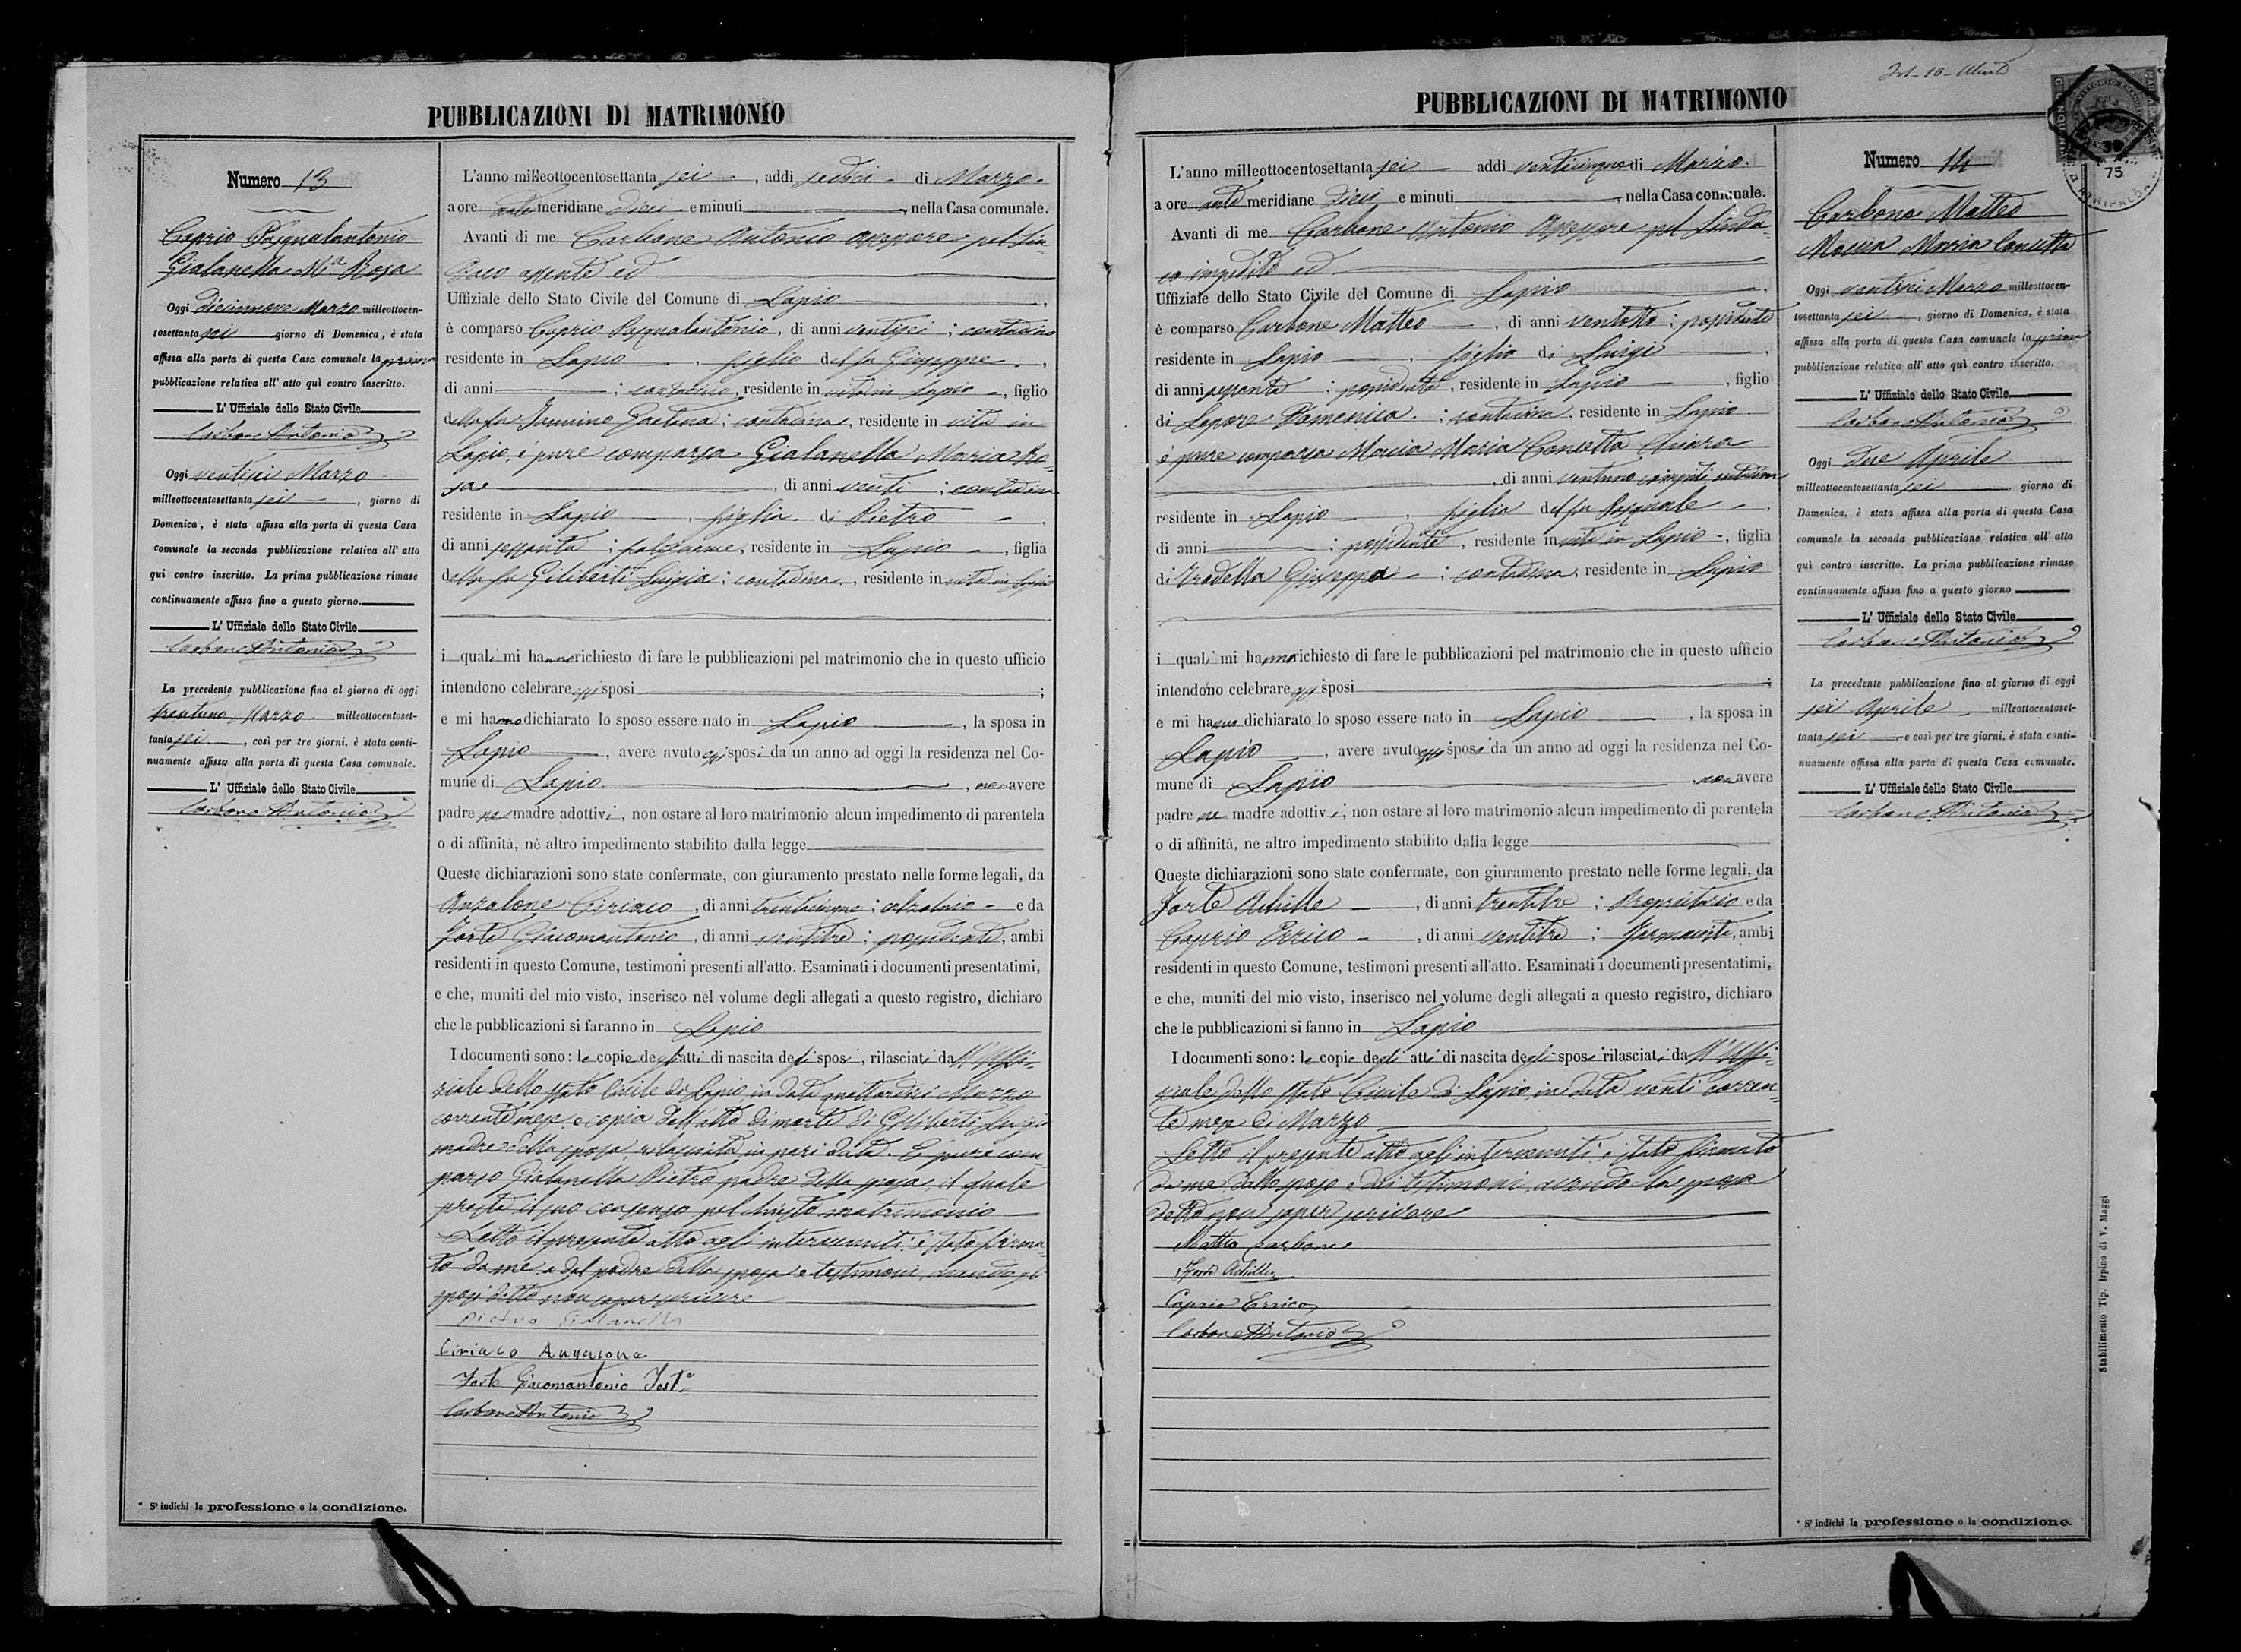 PUBBLICAZIONI DI MATRIMONIO
Numero 13
Caprio Pasqualantonio
Gialanella M.a Rosa
Oggi diciannove Marzo milleottocen-
tosettanta sei giorno di Domenica, è stata
affissa alla porta di questa Casa comunale la prima
pubblicazione relativa all' atto quì contro inscritto.
L' Uffiziale dello Stato Civile
Carbone Antonio
Oggi ventisei Marzo
milleottocentosettanta sei, giorno di
Domenica, è stata affissa alla porta di questa Casa
comunale la seconda pubblicazione relativa all' atto
qui contro inscritto. La prima pubblicazione rimase
continuamente affissa fino a questo giorno.
L' Uffiziale dello Stato Civile
Carbone Antonio
La precedente pubblicazione fino al giorno di oggi
trentuno Marzo milleottocentoset-
tanta sei, così per tre giorni, è stata conti-
nuamente affissa alla porta di questa Casa comunale.
L' Uffiziale dello Stato Civile
Carbone Antonio
* S' indichi la professione o la condizione.
L'anno milleottocentosettanta sei, addi sedici di Marzo
a ore ante meridiane dieci e minuti, nella Casa comunale.
Avanti di me Carbone Antonio Assessore pel Sin-
daco assente ed
Uffiziale dello Stato Civile del Comune di Lapio,
è comparso Caprio Pasqualantonio, di anni ventisei; contadino
residente in Lapio, figlio del fu Giuseppe,
di anni; contadino, residente in vita in Lapio, figlio
della fu Gaetana; contadina, residente in vita in
Lapio, è pure comparsa Gialanella Maria Ro-
sa, di anni venti; contadina
residente in Lapio, figlia di Pietro,
di anni sessanta; falegname, residente in Lapio, figlia
della fu Giliberti Luigia; contadina, residente in vita in Lapio
i quali mi hanno richiesto di fare le pubblicazioni pel matrimonio che in questo ufficio
intendono celebrare essi sposi;
e mi hanno dichiarato lo sposo essere nato in Lapio, la sposa in
Lapio, avere avuto essi sposi da un anno ad oggi la residenza nel Co-
mune di Lapio, non avere
padre ne madre adottivi, non ostare al loro matrimonio alcun impedimento di parentela
o di affinità, nè altro impedimento stabilito dalla legge
Queste dichiarazioni sono state confermate, con giuramento prestato nelle forme legali, da
Anzalone Ciriaco, di anni trentacinque; calzolaio e da
Forte Giacomantonio, di anni ventitre; possidente, ambi
residenti in questo Comune, testimoni presenti all'atto. Esaminati i documenti presentatimi,
e che, muniti del mio visto, inserisco nel volume degli allegati a questo registro, dichiaro
che le pubblicazioni si faranno in Lapio
I documenti sono: le copie degli atti di nascita degli sposi, rilasciati dall'Uffi-
ziale dello Stato Civile di Lapio in data quattordici Marzo
corrente mese e copia dell'atto di morte di Giliberti Luigia
madre della sposa rilasciata in pari data. È pure com-
parso Gialanella Pietro padre della sposa, il quale
presta il suo consenso pel chiesto matrimonio
Letto il presente atto agli intervenuti è stato firma-
to da me e dal padre della sposa e testimoni, avendo gli
sposi detto non saper scrivere
Pietro Gialanella
Ciriaco Anzalone
Forte Giacomantonio Test.e
Carbone Antonio
PUBBLICAZIONI DI MATRIMONIO
L'anno milleottocentosettanta sei addi venticinque di Marzo.
a ore ante meridiane dieci e minuti, nella Casa comunale.
Avanti di me Carbone Antonio Assessore pel Sinda-
co impedito ed
Uffiziale dello Stato Civile del Comune di Lapio,
è comparso Carbone Matteo, di anni ventotto; possidente
residente in Lapio, figlio di Luigi,
di anni sessanta; possidente, residente in Lapio, figlio
di Lapore Domenica; contadina, residente in Lapio
è pure comparsa Maria Concetta Chiara
, di anni ventuno compiti contadina
residente in Lapio, figlia del fu Pasquale,
di anni; possidente, residente in vita in Lapio, figlia
di Giuseppa; contadina, residente in Lapio
i quali mi hanno richiesto di fare le pubblicazioni pel matrimonio che in questo ufficio
intendono celebrare essi sposi;
e mi hanno dichiarato lo sposo essere nato in Lapio, la sposa in
Lapio, avere avuto essi sposi da un anno ad oggi la residenza nel Co-
mune di Lapio, non avere
padre ne madre adottivi; non ostare al loro matrimonio alcun impedimento di parentela
o di affinità, ne altro impedimento stabilito dalla legge
Queste dichiarazioni sono state confermate, con giuramento prestato nelle forme legali, da
Forte Achille, di anni trentatre; Proprietario e da
Caprio Errico, di anni ventitre; Farmacista, ambi
residenti in questo Comune, testimoni presenti all'atto. Esaminati i documenti presentatimi,
e che, muniti del mio visto, inserisco nel volume degli allegati a questo registro, dichiaro
che le pubblicazioni si fanno in Lapio
I documenti sono: le copie degli atti di nascita degli sposi rilasciati dall'Uffi-
ziale dello Stato Civile di Lapio in data venti corren-
te mese di Marzo
Letto il presente atto agli intervenuti è stato firmato
da me dallo sposo e dai testimoni, avendo la sposa
detto non saper scrivere
Matteo Carbone
Forte Achille
Caprio Errico
Carbone Antonio
Numero 14
Carbone Matteo
Maria Concetta
Oggi ventisei Marzo milleottocen-
tosettanta sei, giorno di Domenica, è stata
affissa alla porta di questa Casa comunale la prima
pubblicazione relativa all' atto quì contro inscritto.
L' Uffiziale dello Stato Civile
Carbone Antonio
Oggi due Aprile
milleottocentosettanta sei giorno di
Domenica, è stata affissa alla porta di questa Casa
comunale la seconda pubblicazione relativa all' atto
quì contro inscritto. La prima pubblicazione rimase
continuamente affissa fino a questo giorno
L' Uffiziale dello Stato Civile
Carbone Antonio
La precedente pubblicazione fino al giorno di oggi
sei Aprile milleottocentoset-
tanta sei e così per tre giorni, è stata conti-
nuamente affissa alla porta di questa Casa comunale.
L' Uffiziale dello Stato Civile
Carbone Antonio
* S' indichi la professione o la condizione.
Stabilimento Tip. Irpino di V. Maggi
39
75